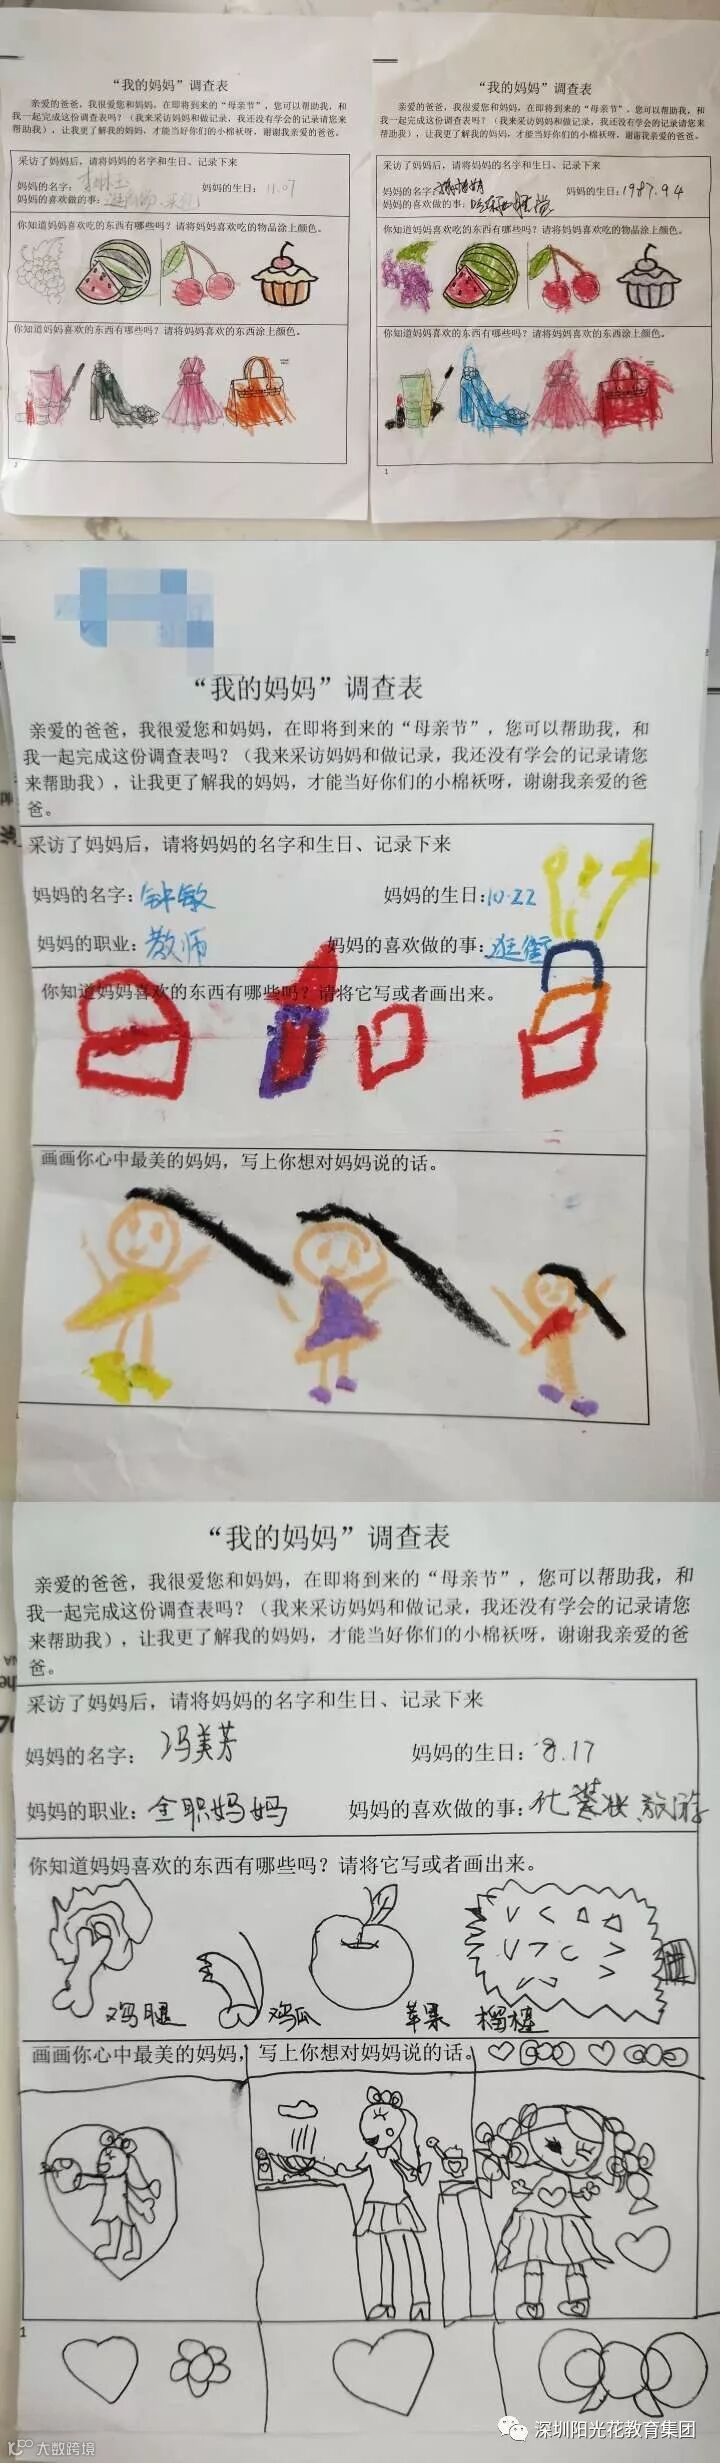 “我的妈妈”调查表
亲爱的爸爸，我很爱您和妈妈，在即将到来的“母亲节”，您可以帮助我，和
我一起完成这份调查表吗？（我来采访妈妈和做记录，我还没有学会的记录请您来
帮助我），让我更了解我的妈妈，才能当好你们的小棉袄呀，谢谢我亲爱的爸爸。
采访了妈妈后，请将妈妈的名字和生日、记录下来
妈妈的名字：
妈妈的生日：11.07
妈妈的喜欢做的事：
你知道妈妈喜欢吃的东西有哪些吗？请将妈妈喜欢吃的物品涂上颜色。
你知道妈妈喜欢的东西有哪些吗？请将妈妈喜欢的东西涂上颜色。
2
“我的妈妈”调查表
亲爱的爸爸，我很爱您和妈妈，在即将到来的“母亲节”，您可以帮助我，和
我一起完成这份调查表吗？（我来采访妈妈和做记录，我还没有学会的记录请您来
帮助我），让我更了解我的妈妈，才能当好你们的小棉袄呀，谢谢我亲爱的爸爸。
采访了妈妈后，请将妈妈的名字和生日、记录下来
妈妈的名字：
妈妈的生日：1987.9.4
妈妈的喜欢做的事：
你知道妈妈喜欢吃的东西有哪些吗？请将妈妈喜欢吃的物品涂上颜色。
你知道妈妈喜欢的东西有哪些吗？请将妈妈喜欢的东西涂上颜色。
1
“我的妈妈”调查表
亲爱的爸爸，我很爱您和妈妈，在即将到来的“母亲节”，您可以帮助我，和
我一起完成这份调查表吗？（我来采访妈妈和做记录，我还没有学会的记录请您
来帮助我），让我更了解我的妈妈，才能当好你们的小棉袄呀，谢谢我亲爱的爸
爸。
采访了妈妈后，请将妈妈的名字和生日、记录下来
妈妈的名字：钟敏 妈妈的生日：10.22
妈妈的职业：教师 妈妈的喜欢做的事：逛街
你知道妈妈喜欢的东西有哪些吗？请将它写或者画出来。
画画你心中最美的妈妈，写上你想对妈妈说的话。
“我的妈妈”调查表
亲爱的爸爸，我很爱您和妈妈，在即将到来的“母亲节”，您可以帮助我，和
我一起完成这份调查表吗？（我来采访妈妈和做记录，我还没有学会的记录请您
来帮助我），让我更了解我的妈妈，才能当好你们的小棉袄呀，谢谢我亲爱的爸
爸。
采访了妈妈后，请将妈妈的名字和生日、记录下来
妈妈的名字：冯美芳 妈妈的生日：8.17
妈妈的职业：全职妈妈 妈妈的喜欢做的事：化 妆 旅游
你知道妈妈喜欢的东西有哪些吗？请将它写或者画出来。
鸡腿 鸡瓜 苹果 榴梿
画画你心中最美的妈妈，写上你想对妈妈说的话。
1
大数跨境
深圳阳光花教育集团